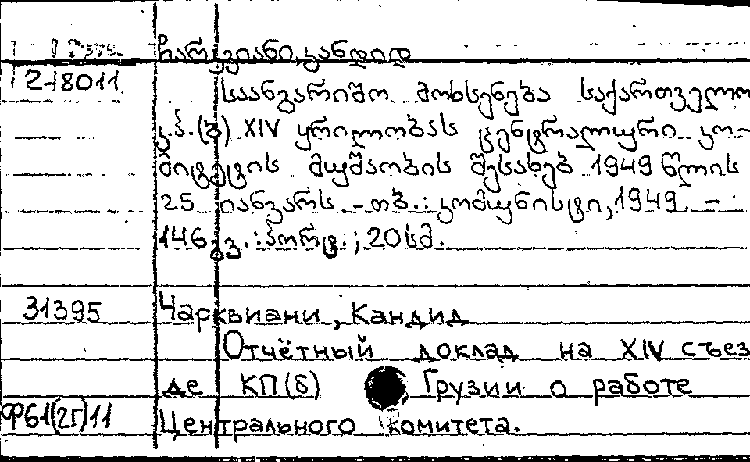 ჩარკვიანი, კანდიდ
2-18011
საანგარიშო მოხსენება საქართველო
კ.პ.(ბ) XIV ყრილობას ცენტრალური კო-
მიტეტის მუშაობის შესახებ 1949 წლის
25 იანვარს. - თბ.: კომუნისტი, 1949. -
146 გვ.: პორტ.; 20 სმ.
31395 Чарквиани, Кандид
Отчётный доклад на XIV съез
де КП(б) Грузии о работе
Ф61(2Г)11 Центрального комитета.